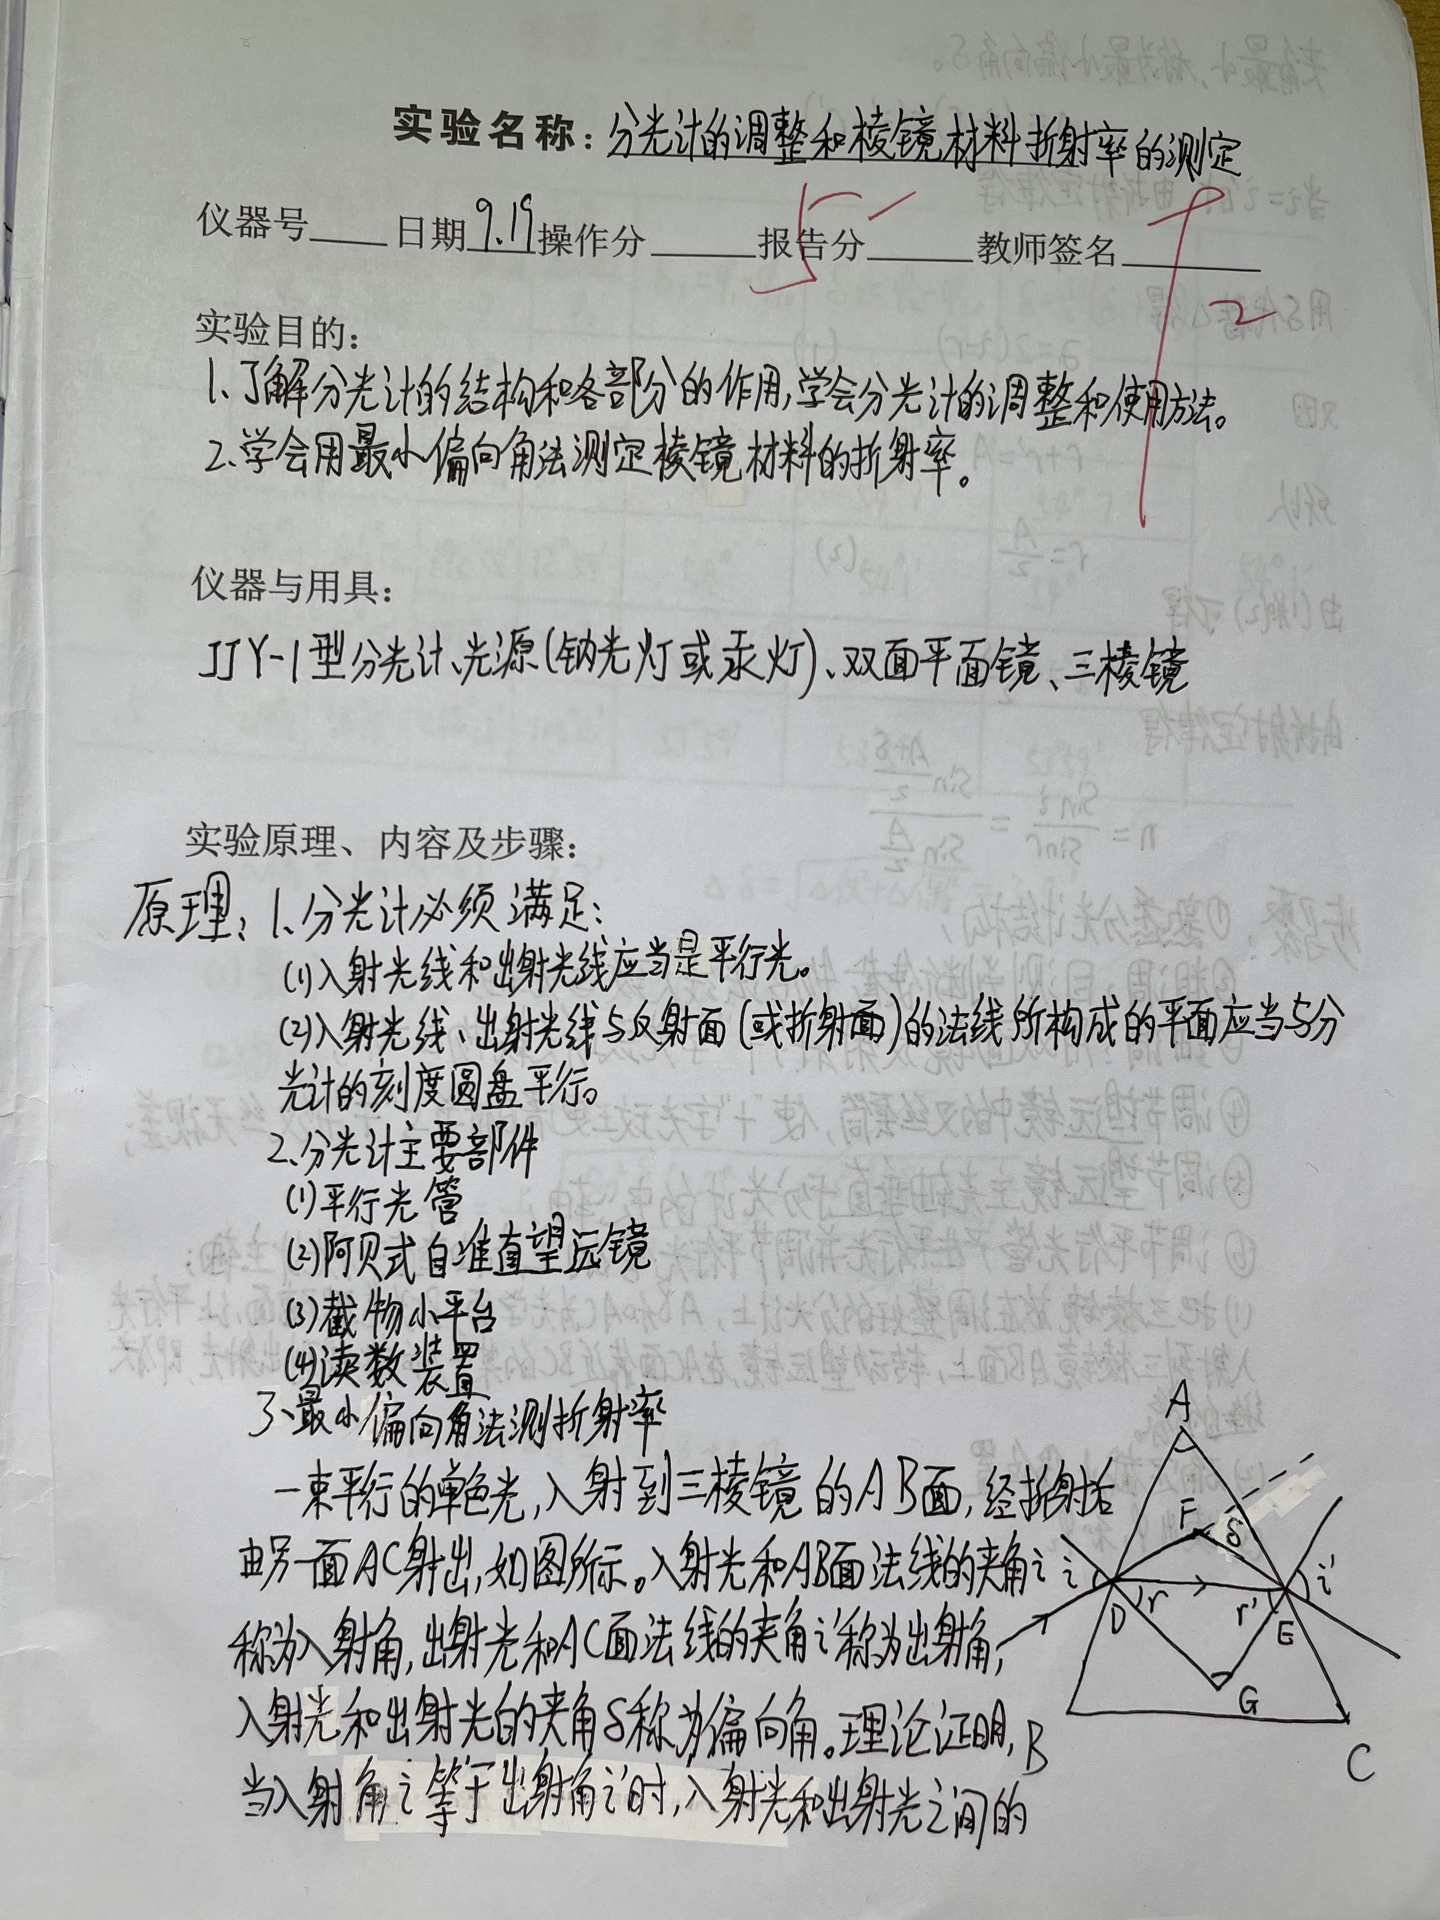 实验名称：分光计的调整和棱镜材料折射率的测定
仪器号 日期9.19操作分 报告分 教师签名
5
2
实验目的：
1、了解分光计的结构和各部分的作用,学会分光计的调整和使用方法。
2、学会用最小偏向角法测定棱镜材料的折射率。
仪器与用具：
JJY-1型分光计、光源(钠光灯或汞灯)、双面平面镜、三棱镜
实验原理、内容及步骤：
原理：1、分光计必须满足：
(1)入射光线和出射光线应当是平行光。
(2)入射光线、出射光线与反射面(或折射面)的法线所构成的平面应当与分
光计的刻度圆盘平行。
2、分光计主要部件
(1)平行光管
(2)阿贝式自准直望远镜
(3)截物小平台
(4)读数装置
3、最小偏向角法测折射率
一束平行的单色光,入射到三棱镜的AB面,经折射后
由另一面AC射出,如图所示。入射光和AB面法线的夹角i
称为入射角,出射光和AC面法线的夹角i'称为出射角,
入射光和出射光的夹角δ称为偏向角。理论证明,
当入射角i等于出射角i'时,入射光和出射光之间的
A
F δ
i i'
D r r' E
G
B C